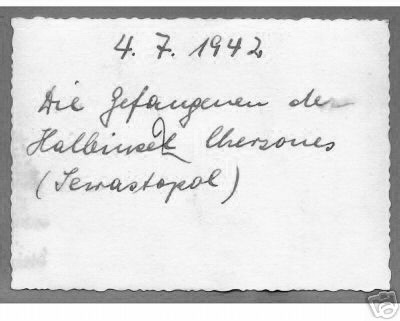 4. 7. 1942
Die Gefangenen der
Halbinsel Chersones
(Sewastopol)